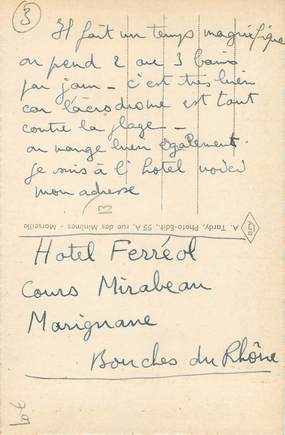 3
Il fait un temps magnifique
on prend 2 ou 3 bains
par jour - c'est très bien
car l'aérodrome est tout
contre la plage -
on mange bien également.
je suis à l'hotel voici
mon adresse
13
A. Tardy, Photo-Edit. 55 A, rue des Minimes - Marseille
Hotel Ferréol
Cours Mirabeau
Marignane
Bouches du Rhône